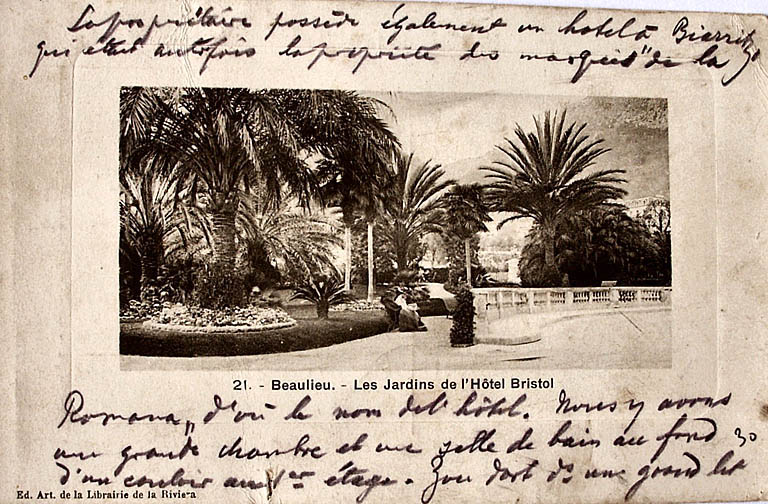 La propriétaire possède également un hotel à Biarritz
qui était autrefois la propriété des marquis "de la
21. - Beaulieu. - Les Jardins de l'Hôtel Bristol
Romana", d'où le nom del'hôtel. Nous y avons
une grande chambre et une salle de bain au fond
d'un couloir au 1er étage. Zou dort ds une grand lit
Ed. Art. de la Librairie de la Riviera